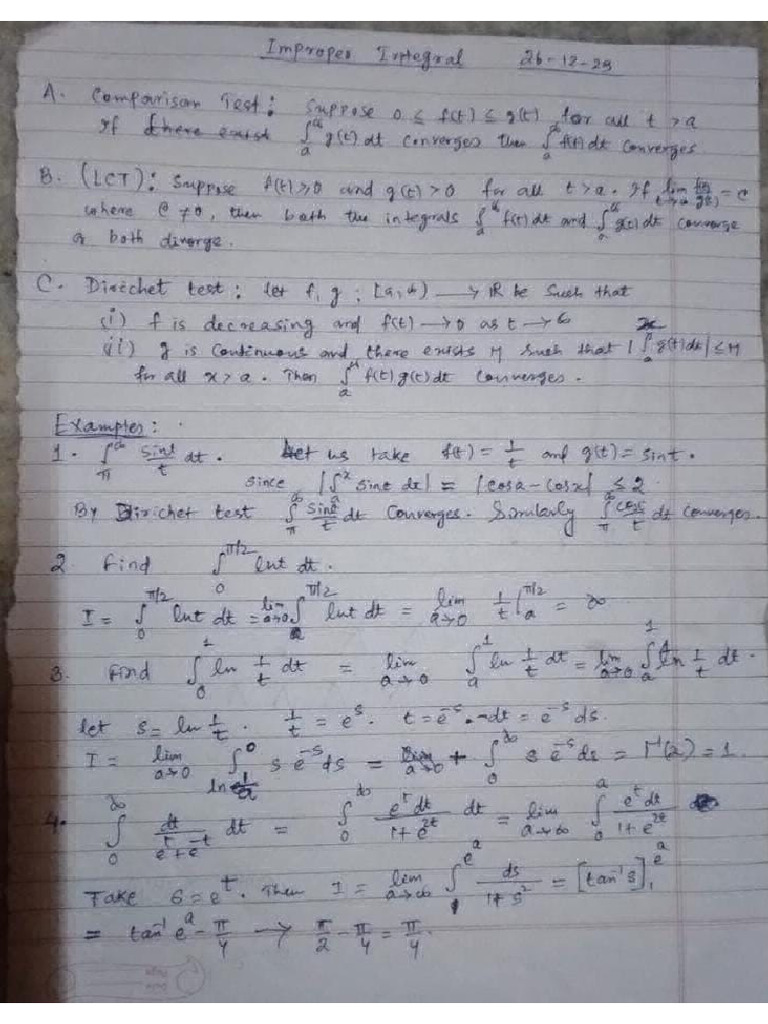 Improper Integral 26-12-23
A. Comparison Test: Suppose 0 ≤ f(t) ≤ g(t) for all t > a
If there exist ∫_a^∞ g(t) dt converges then ∫_a^∞ f(t) dt converges
B. (LCT): Suppose f(t) ≥ 0 and g(t) > 0 for all t > a. If lim f(t)/g(t) = c
where c ≠ 0, then both the integrals ∫_a^∞ f(t) dt and ∫_a^∞ g(t) dt converge
or both diverge.
C. Dirichet test: let f, g : [a, ∞) → ℝ be such that
(i) f is decreasing and f(t) → 0 as t → ∞
(ii) g is continuous and there exists M such that |∫_a^x g(t)dt| ≤ M
for all x > a. Then ∫_a^∞ f(t) g(t) dt converges.
Examples:
1. ∫_π^∞ sint/t dt. Let us take f(t) = 1/t and g(t) = sint.
since |∫_a^x sint dt| = |cosa - cosx| ≤ 2.
By Dirichet test ∫_π^∞ sint/t dt converges. Similarly ∫_π^∞ cost/t dt converges.
2. Find ∫_0^{π/2} lnt dt.
I = ∫_0^{π/2} lnt dt = lim_{a→0} ∫_a^{π/2} lnt dt = lim_{a→0} 1/t |_a^{π/2} = ∞
3. Find ∫_0^1 ln 1/t dt = lim_{a→0} ∫_a^1 ln 1/t dt = lim_{a→0} ∫_a^1 ln 1/t dt.
let s = ln 1/t. 1/t = e^s. t = e^{-s}. -dt = e^{-s} ds.
I = lim_{a→0} ∫_{ln 1/a}^0 s e^{-s} ds = + ∫_0^∞ s e^{-s} ds = Γ(2) = 1.
4. ∫_0^∞ dt/(e^t + e^{-t}) dt = ∫_0^∞ e^t dt/(1+e^{2t}) dt = lim_{a→∞} ∫_0^a e^t dt/(1+e^{2t})
Take s = e^t. Then I = lim_{a→∞} ∫_1^{e^a} ds/(1+s^2) = [tan^{-1} s]_1^{e^a}
= tan^{-1} e^a - π/4 → π/2 - π/4 = π/4.